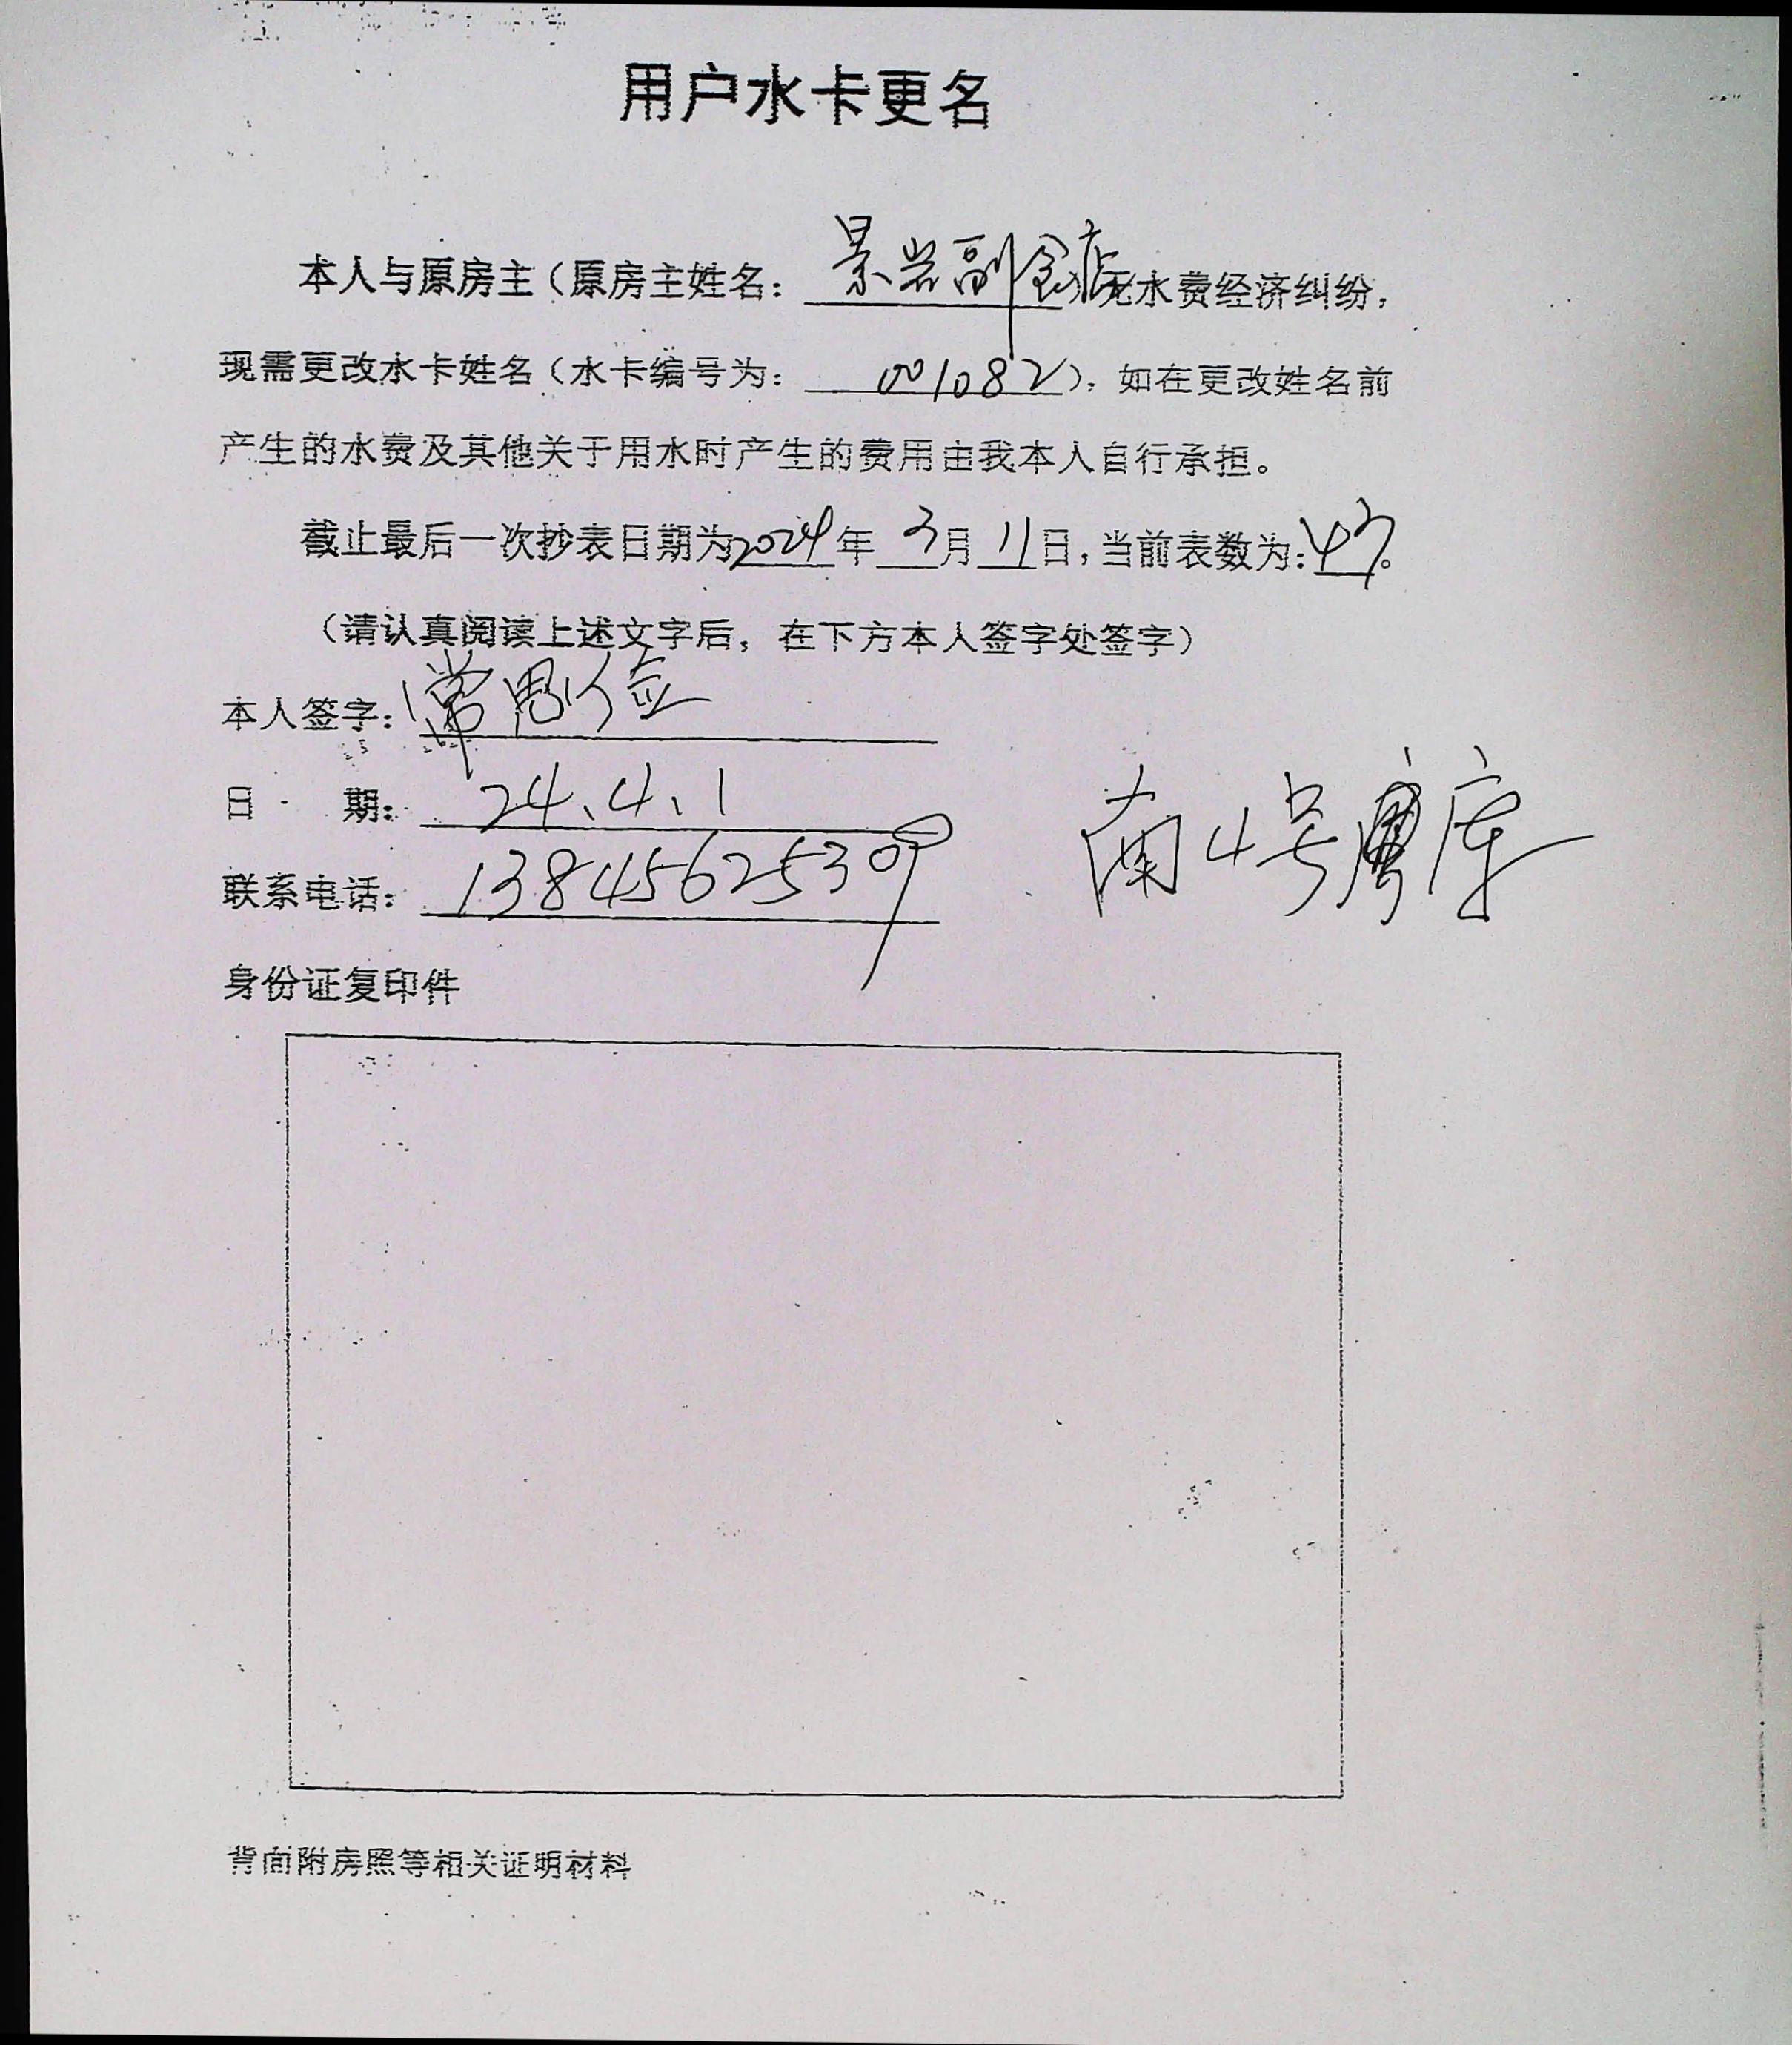 用户水卡更名
本人与原房主（原房主姓名：景岩副食店）无水费经济纠纷，
现需更改水卡姓名（水卡编号为：001082），如在更改姓名前
产生的水费及其他关于用水时产生的费用由我本人自行承担。
截止最后一次抄表日期为2024年3月11日，当前表数为：43。
（请认真阅读上述文字后，在下方本人签字处签字）
本人签字：常
日 期：24.4.1
联系电话：13845625309
南4号 库
身份证复印件
背面附房照等相关证明材料